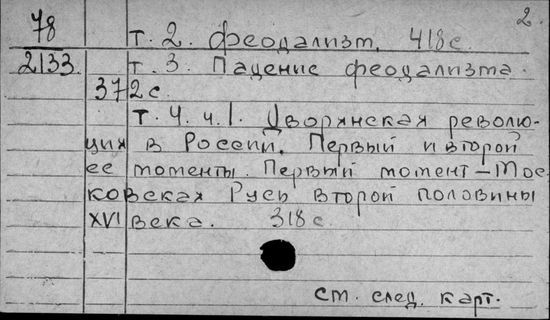 78 2.
т. 2. феодализм. 418 с.
2133 т. 3. Падение феодализма.
372 с.
т. 4. ч. 1. Дворянская револю-
ция в России. Первый и второй
ее моменты. Первый момент – Мос-
ковская Русь второй половины
XVI века. 318 с.
ст. след. карт.